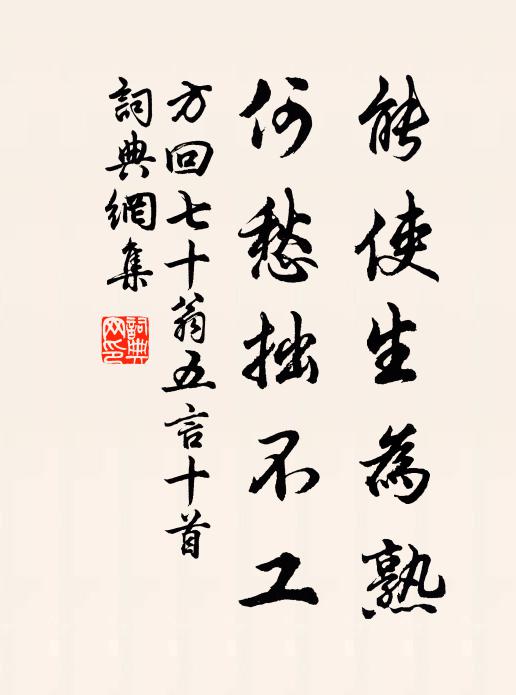 能使生為熟
何愁拙不工
方回七十翁五言十首
詞典網集
詞典网印